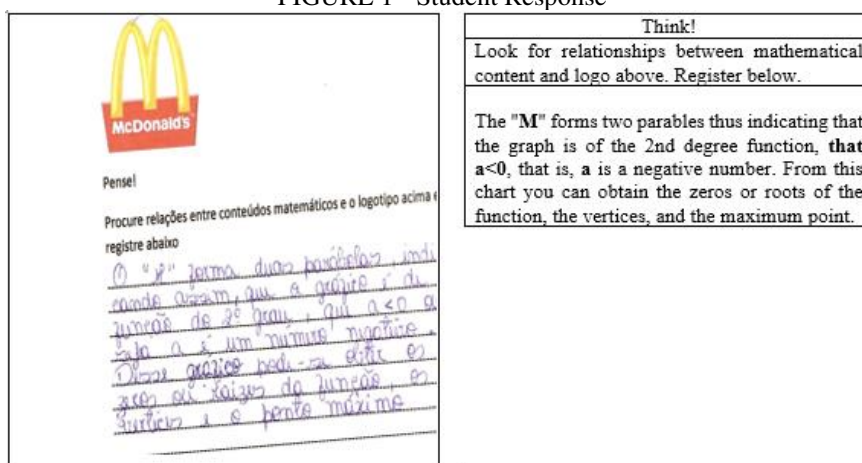 FIGURE 1 - Student Response
McDonald's
Pense!
Procure relações entre conteúdos matemáticos e o logotipo acima e
registre abaixo
O "M" forma duas parábolas, indi
cando assim, que o gráfico é di
função do 2º grau, que a<0 o
seja a é um número negativo.
Desse gráfico pode-se obter os
zeros ou raízes da função, os
vértices e o ponto máximo
Think!
Look for relationships between mathematical
content and logo above. Register below.
The "M" forms two parables thus indicating that
the graph is of the 2nd degree function, that
a<0, that is, a is a negative number. From this
chart you can obtain the zeros or roots of the
function, the vertices, and the maximum point.